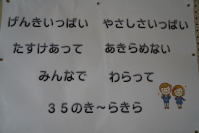 げんきいっぱい　やさしさいっぱい
たすけあって　あきらめない
みんなで　わらって
３５のき～らきら